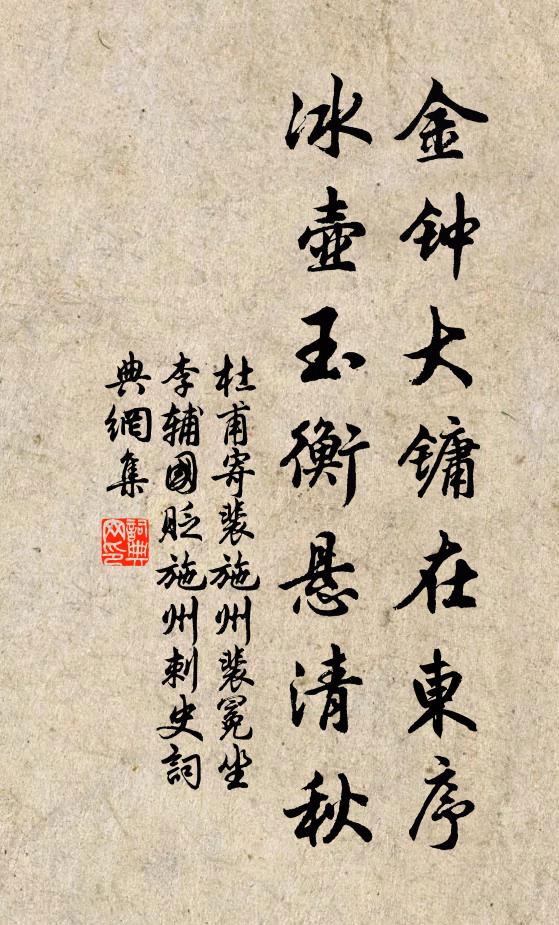 金钟大镛在東序
冰壺玉衡悬清秋
杜甫寄裴施州裴冕坐
李辅國貶施州刺史詞
典網集
詞典
网印